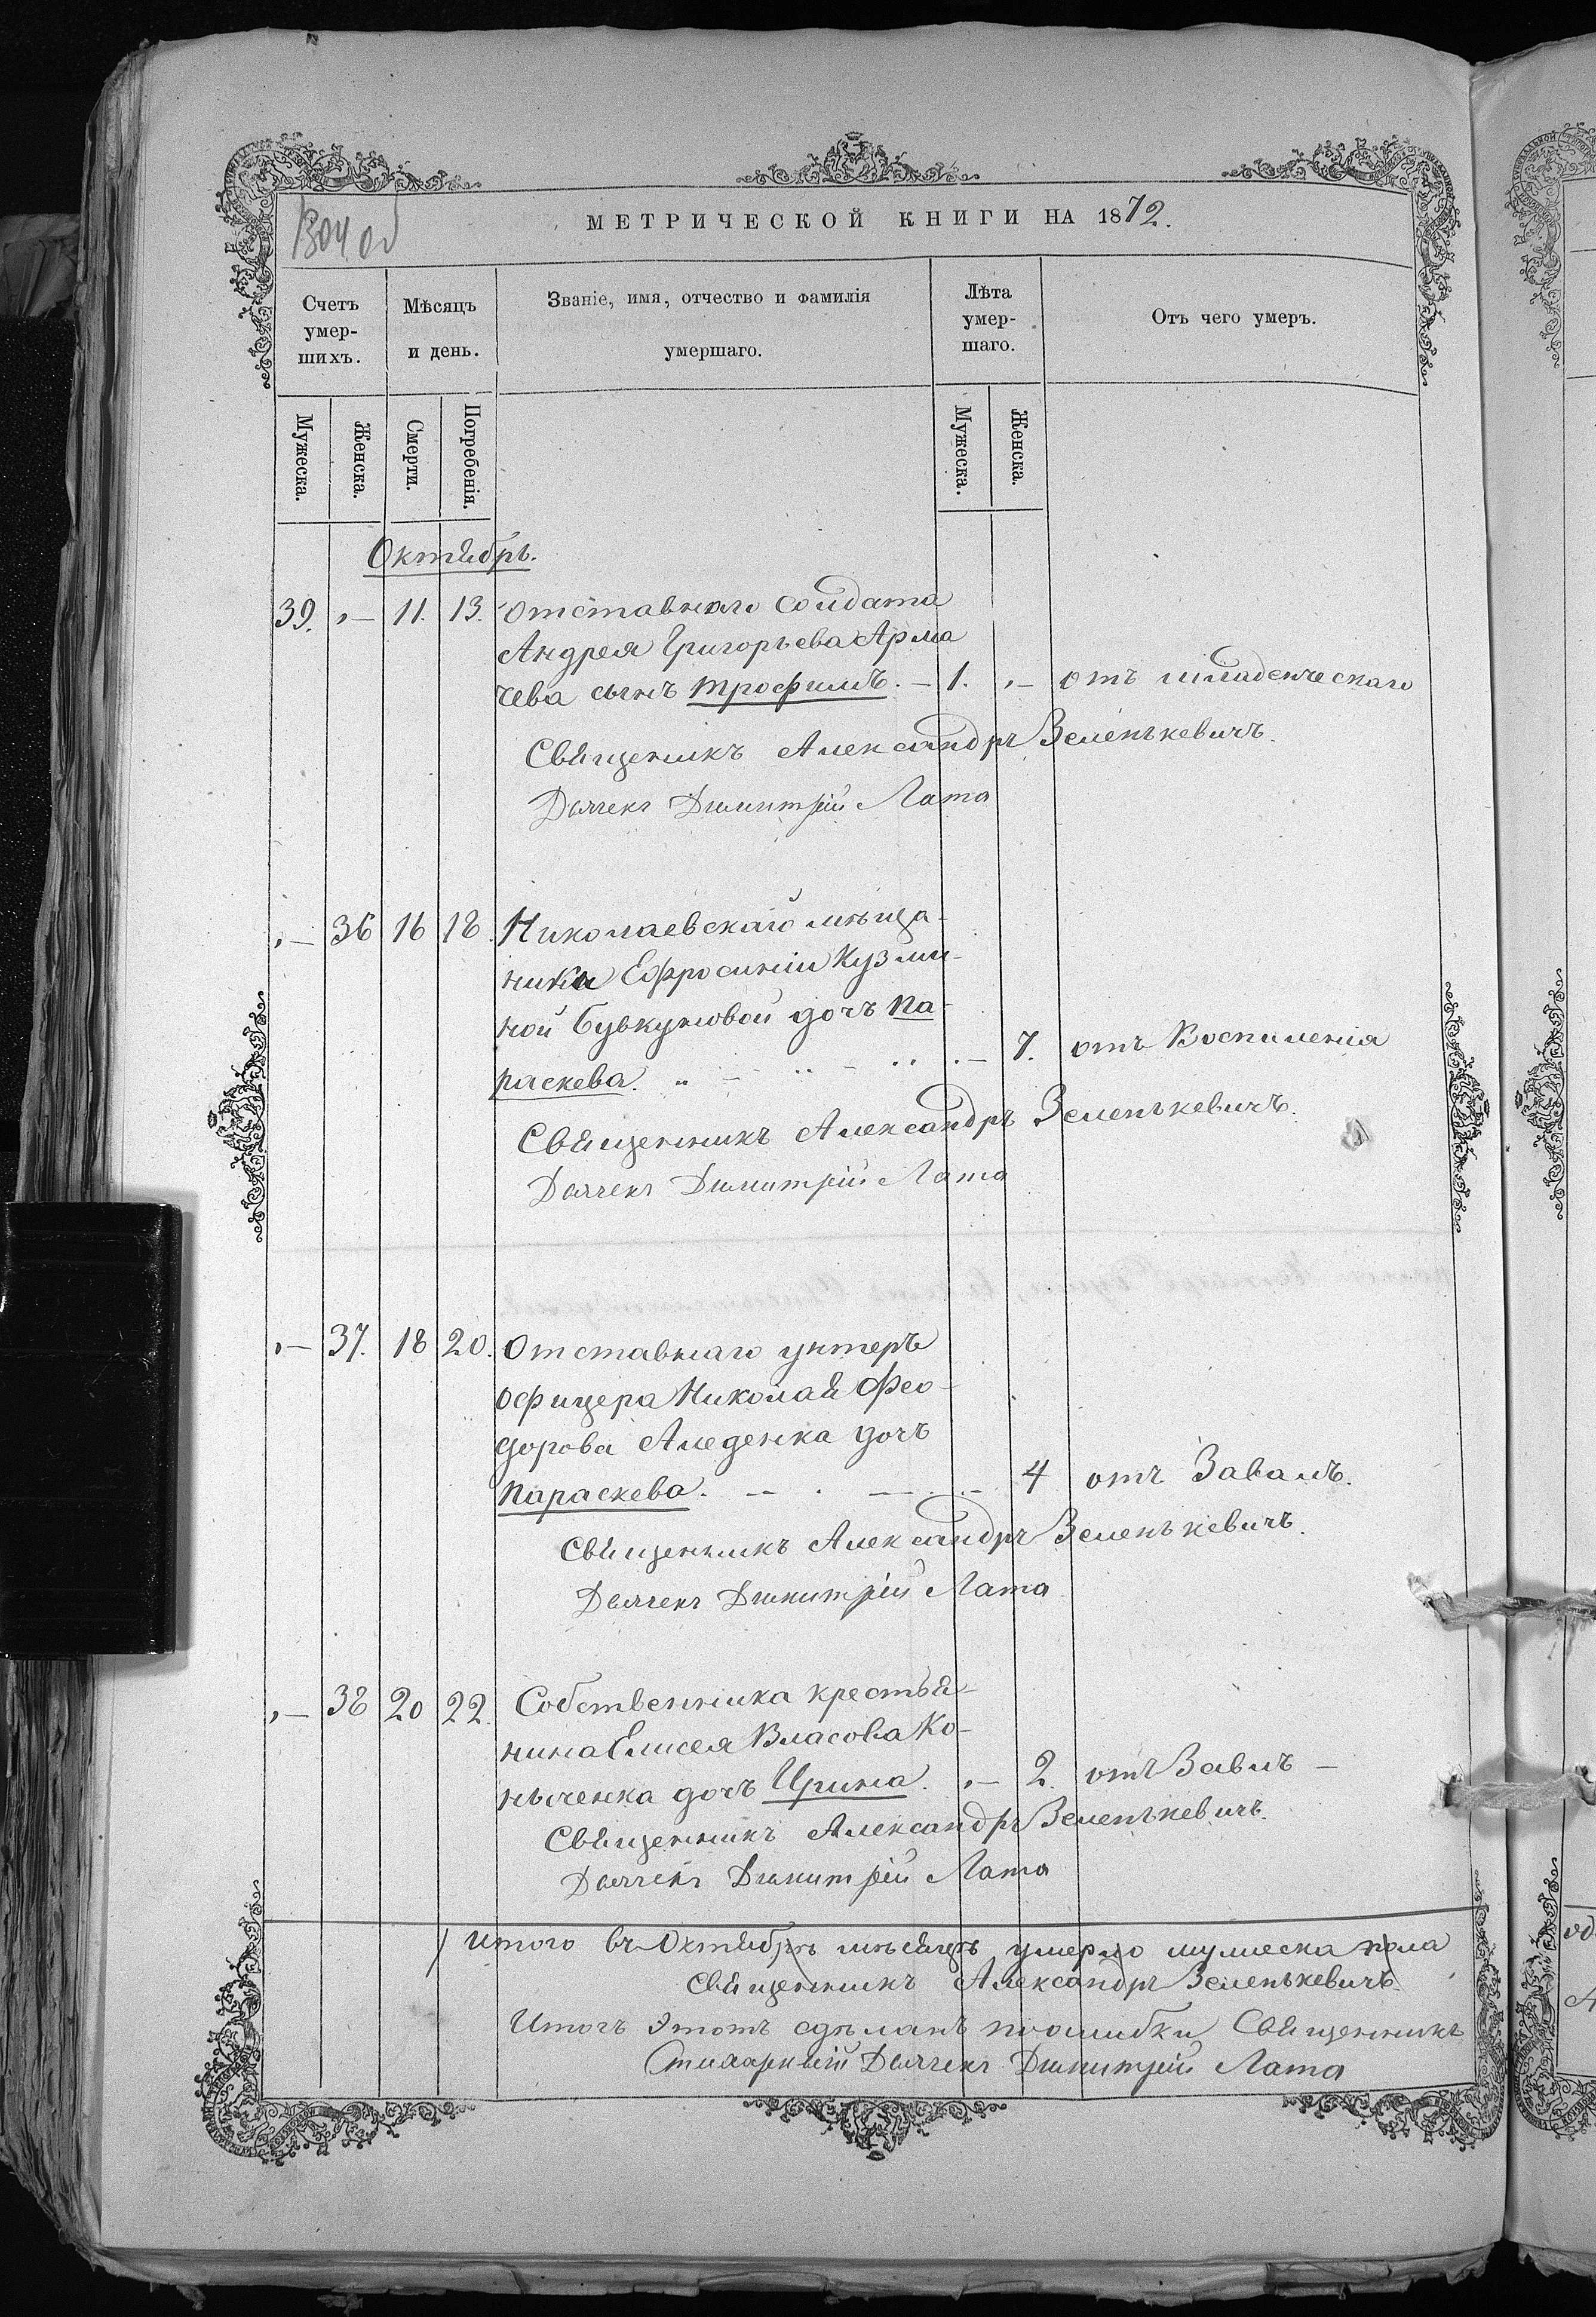 1304 об
МЕТРИЧЕСКОЙ КНИГИ НА 1872.
Счетъ умер-шихъ.
Мѣсяцъ и день.
Званіе, имя, отчество и фамилія умершаго.
Лѣта умер-шаго.
Отъ чего умеръ.
Мужеска.
Женска.
Смерти.
Погребенія.
Мужеска.
Женска.
Октябрь.
39. „— 11. 13. Отставнаго солдата
Андрея Григорьева Арма
чева сынъ Трофимъ. — 1. „— отъ младенческаго
Священикъ Александръ Зеленькевичъ.
Дьячекъ Димитрій Лата
„— 36 16 18. Николаевскаго мѣща-
ника Ефросиніи Кузми-
ной Бувкуновой дочъ Па-
раскева. „ — „ — „ „— 7. отъ Воспаленія
Священникъ Александръ Зеленькевичъ.
Дьячекъ Димитрій Лата
„— 37. 18 20. Отставнаго унтеръ
офицера Николая Фео-
дорова Амеденка дочъ
Параскева. — . — „— 4 отъ Завалъ.
Священникъ Александръ Зеленькевичъ.
Дьячекъ Димитрій Лата
„— 38 20 22. Собственника крестья-
нина Елисея Власова Ко-
ныченка дочъ Ирина. „— 2. отъ Завлъ —
Священникъ Александръ Зеленькевичъ.
Дьячекъ Димитрій Лата
Итого въ Октябрѣ мѣсяцѣ умерло мужеска пола
Священникъ Александръ Зеленькевичъ.
Итогъ этотъ сдѣланъ поошибки Священникъ
Стихарный Дьячекъ Димитрій Лата